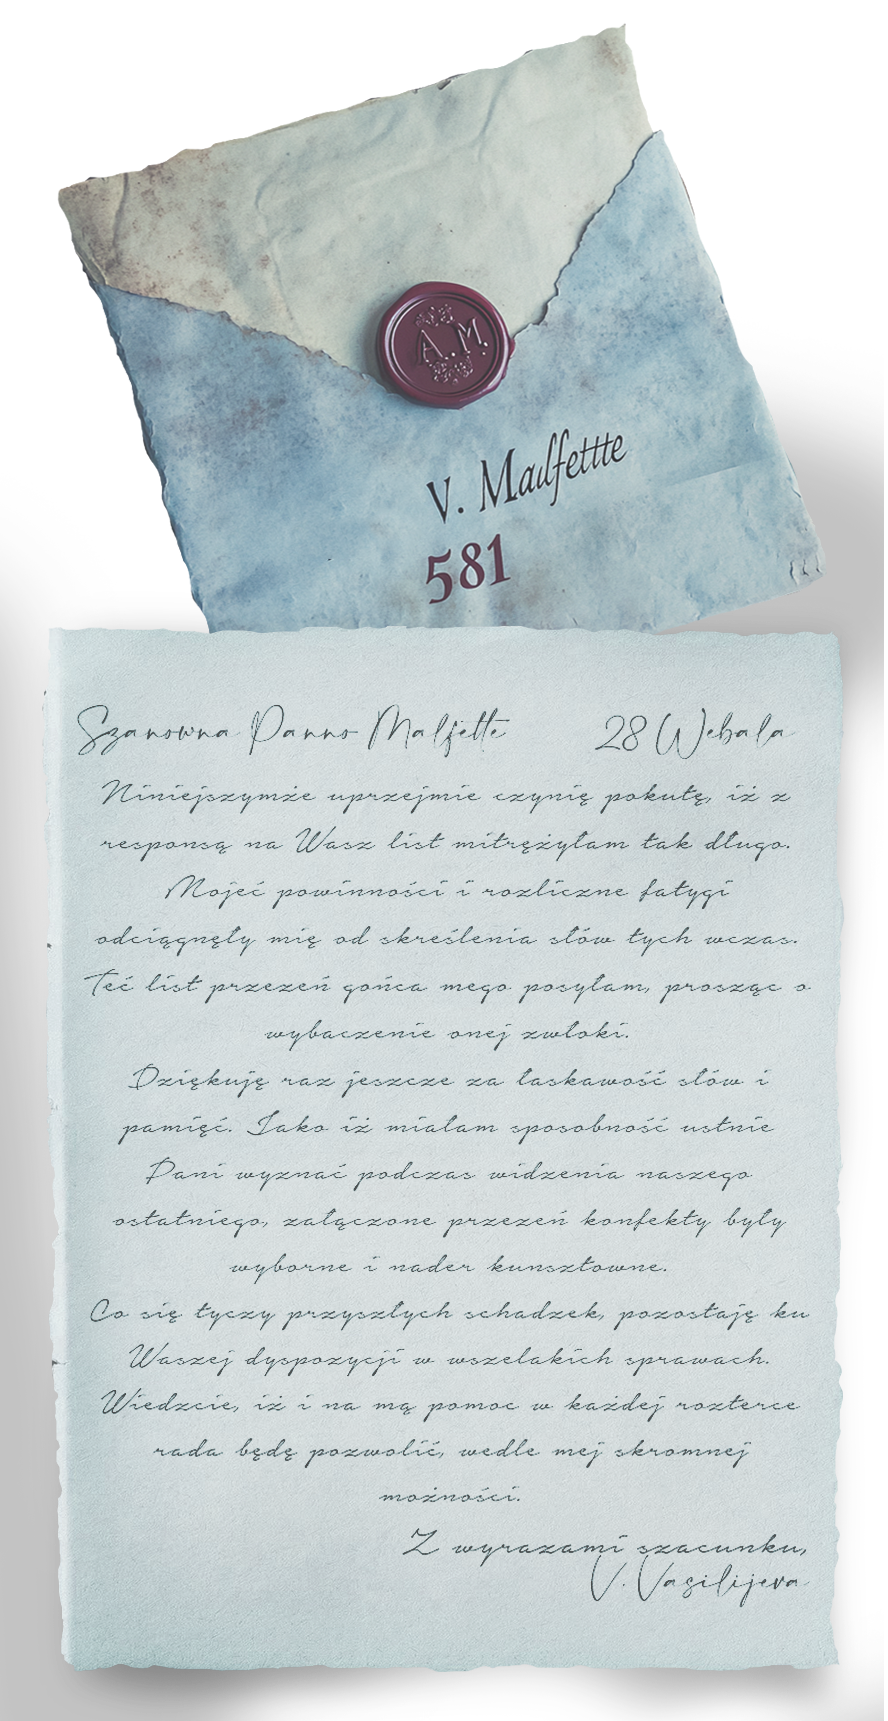 A. M.
V. Madfettte
581
Szanowna Panno Malfette 28 Webala
Niniejszymże uprzejmie czynię pokutę, iż z
responsą na Wasz list mitrężyłam tak długo.
Mojeć powinności i rozliczne fatygi
odciągnęły mię od skreślenia słów tych wczas.
Teć list przezeń gońca mego posyłam, prosząc o
wybaczenie onej zwłoki.
Dziękuję raz jeszcze za łaskawość słów i
pamięć. Jako iż miałam sposobność ustnie
Pani wyznać podczas widzenia naszego
ostatniego, załączone przezeń konfekty były
wyborne i nader kunsztowne.
Co się tyczy przyszłych schadzek, pozostaję ku
Waszej dyspozycji w wszelakich sprawach.
Wiedzcie, iż i na mą pomoc w każdej rozterce
rada będę pozwolić, wedle mej skromnej
możności.
Z wyrazami szacunku,
V. Vasilijeva